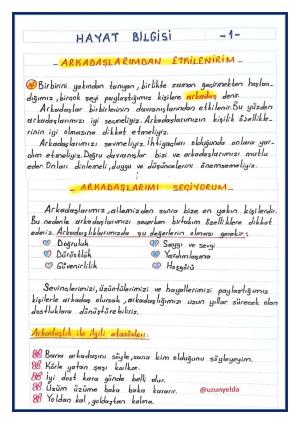 HAYAT BİLGİSİ -1-
- ARKADAŞLARIMDAN ETKİLENİRİM -
Birbirini yakından tanıyan, birlikte zaman geçirmekten hoşlan-
dığımız, birçok şeyi paylaştığımız kişilere arkadaş denir.
Arkadaşlar birbirlerinin davranışlarından etkilenir. Bu yüzden
arkadaşlarımızı iyi seçmeliyiz. Arkadaşlarımızın kişilik özellikle-
rinin iyi olmasına dikkat etmeliyiz.
Arkadaşlarımızı sevmeliyiz. İhtiyaçları olduğunda onlara yar-
dım etmeliyiz. Doğru davranışlar bizi ve arkadaşlarımızı mutlu
eder. Onları dinlemeli, duygu ve düşüncelerini önemsemeliyiz.
- ARKADAŞLARIMI SEÇİYORUM -
Arkadaşlarımız, ailemizden sonra bize en yakın kişilerdir.
Bu nedenle arkadaşlarımızı seçerken birtakım özelliklere dikkat
ederiz. Arkadaşlıklarımızda şu değerlerin olması gerekir:
Doğruluk Saygı ve sevgi
Dürüstlük Yardımlaşma
Güvenirlilik Hoşgörü
Sevinçlerimizi, üzüntülerimizi ve hayallerimizi paylaştığımız
kişilerle arkadaş olursak, arkadaşlığımızı uzun yıllar sürecek olan
dostluklara dönüştürebiliriz.
Arkadaşlık ile ilgili atasözleri:
Bana arkadaşını söyle, sana kim olduğunu söyleyeyim.
Körle yatan şaşı kalkar.
İyi dost kara günde belli olur.
Üzüm üzüme baka baka kararır. @uzunyelda
Yoldan kal, yoldaştan kalma.